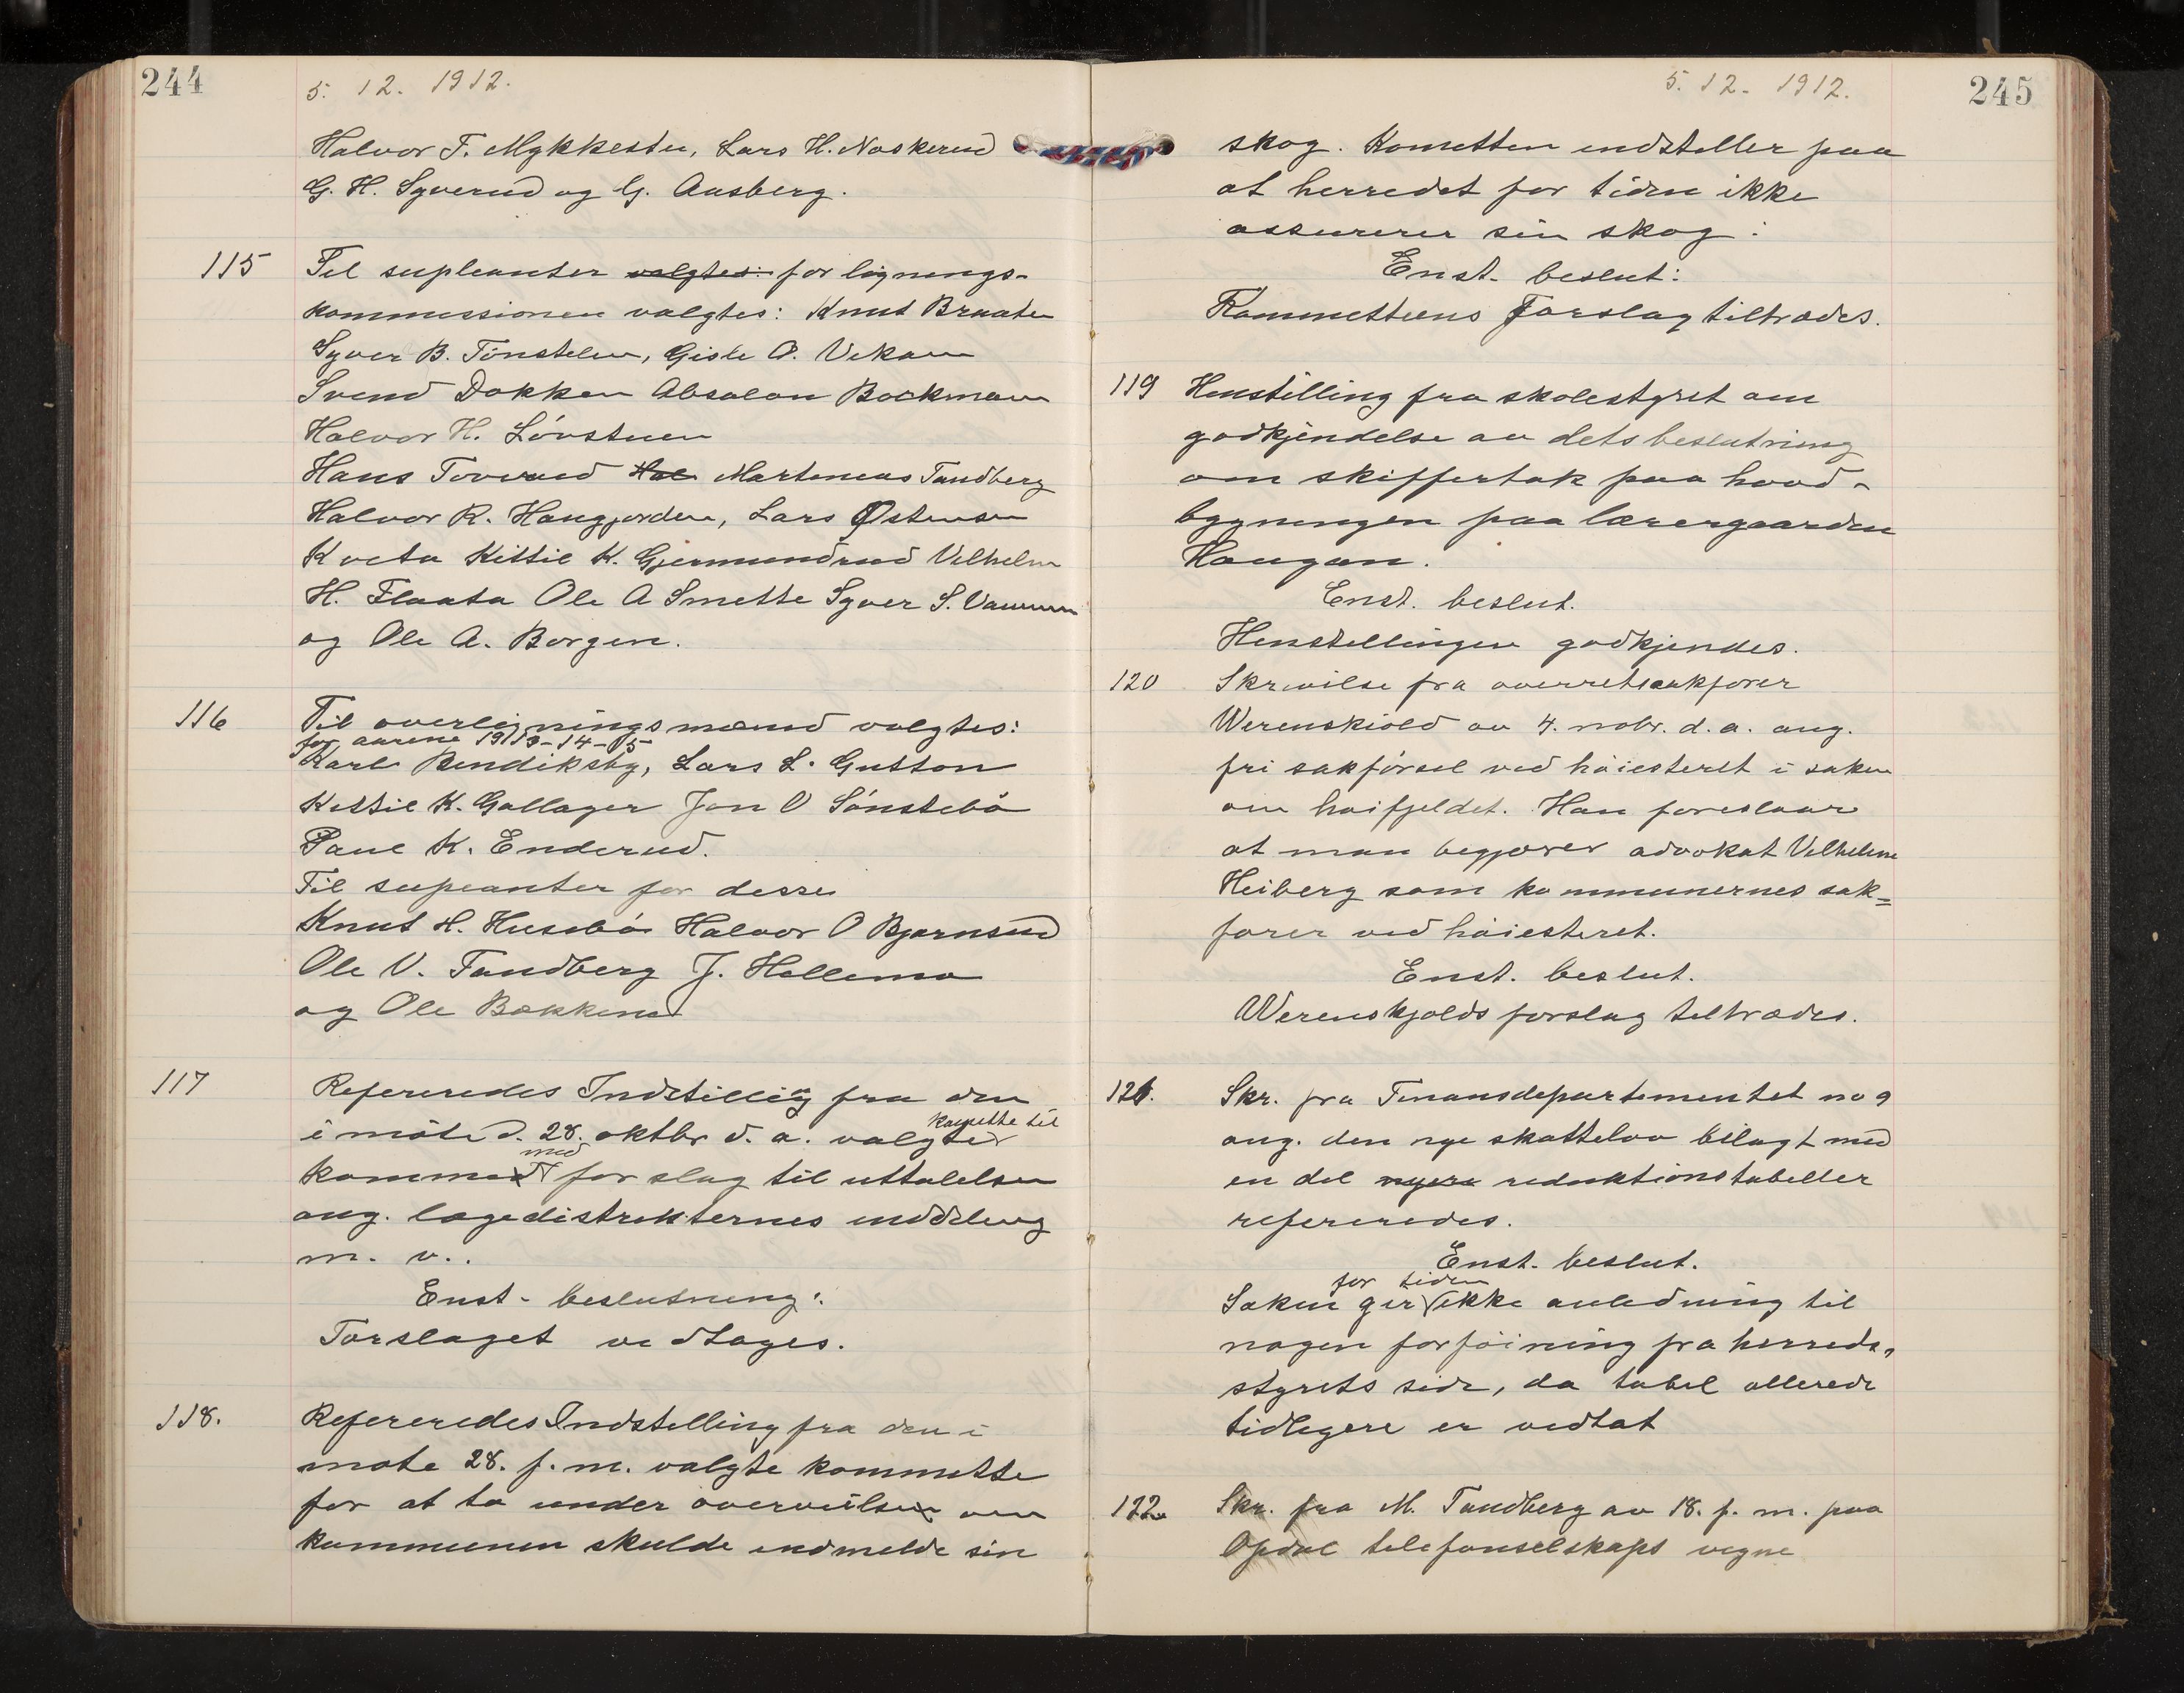 244
5. 12. 1912.
Halvor T. Mykkestu, Lars H. Naskerud
G. H. Syverud og G. Aasberg.
115 Til supleanter valgtes: for lignings-
kommissionen valgtes: Knut Braaten
Syver B. Tønstelien, Gisle O. Vekan
Svend Dokken Absalon Bockman
Halvor H. Løvstuen
Hans Toverud Hal Martinius Tandberg
Halvor R. Haugjorden, Lars Østensen
Kittil K. Gjermundrud Vilhelm
H. Flaata Ole A Smette Syver S.
og Ole A. Borgen.
116 Til overligningsmænd valgtes:
for aarene 1913-14-15
Karl Bendiksby, Lars L. Gutton
Kittil K. Gallager Jon O Sønstebø
Paul K. Enderud.
Til supeanter for desse
Knut H. Husebø Halvor O Bjørnsrud
Ole V. Tandberg J. Hellemo
og Ole Bækkerud
117 Refereredes Indstillig fra den
i møte d. 28. oktbr d. a. valgte komitte til
med forslag til uttalelse
ang. lægedistrikternes inddeling
m. v..
Enst. beslutning:
Forslaget vedtages.
118. Refereredes Indstelling fra den i
møte 28. f. m. valgte kommitte
for at ta under overveielse om
kommunen skulde indmelde sin
5. 12. 1912.
245
skog. Kometten indsteller paa
at herredet for tiden ikke
assurerer sin skog:
Enst. beslut:
Kommitteens Forslag tiltrædes.
119 Henstilling fra skolestyret om
godkjendelse av dets beslutning
om skiffertak paa hoved-
bygningen paa lærergaarden
Haugan.
Enst. beslut.
Henstillingen godkjendes.
120 Skrivilse fra overretssakfører
Werenskiold av 4. nobr. d. a. ang.
fri sakførsel ved høiesteret i saken
om høifjeldet. Han foreslaar
at man begjærer advokat Vilhelm
Heiberg som kommunernes sak=
fører ved høiesteret.
Enst. beslut.
Werenskjolds forslag tiltrædes.
121. Skr. fra Finansdepartementet no 9
ang. den nye skattelov bilagt med
en del nyere reduktionstabeller
refereredes.
Enst. beslut.
for tiden
Saken gir ikke anledning til
nogen forføining fra herreds-
styrets side, da tabel allerede
tidligere er vedtat
122 Skr. fra M. Tandberg av 18. f. m. paa
Opdal telefonselskaps vegne